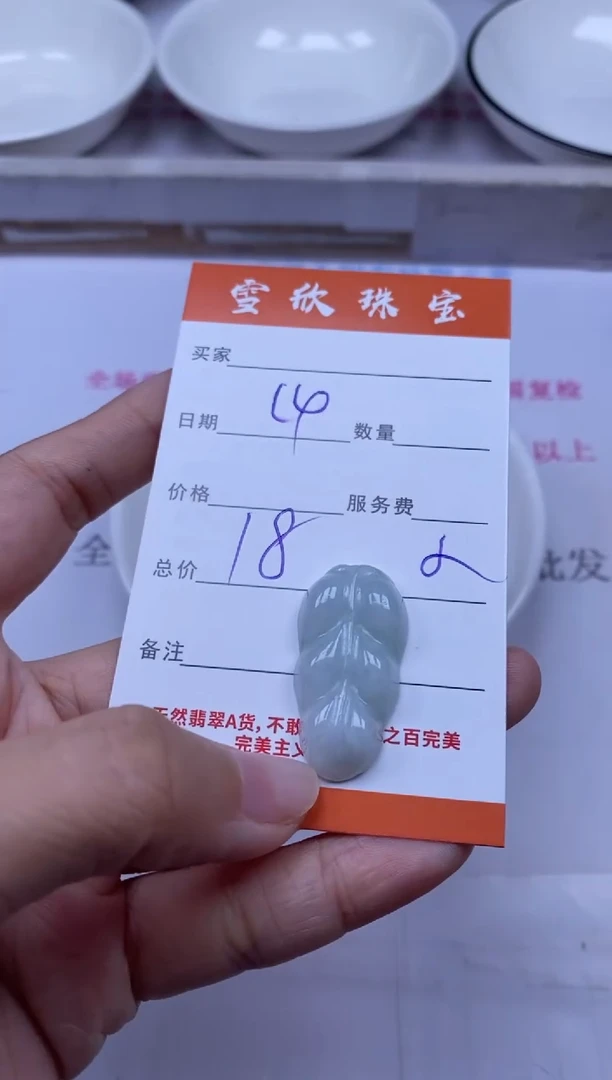 雪欣珠宝
买家
14
日期 数量
价格 服务费
18
总价
备注
天然翡翠A货,不敢 之百完美
完美主义
复检
以上
全 批发